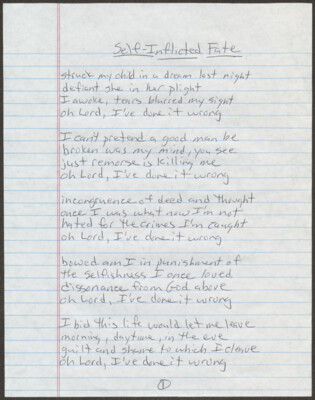 Self-Inflicted Fate
struck my child in a dream last night
defiant she in her plight
I awoke, tears blurred my sight
oh Lord, I've done it wrong
I can't pretend a good man be
broken was my mind, you see
just remorse is killing me
oh Lord, I've done it wrong
incongruence of deed and thought
once I was what now I'm not
hated for the crimes I'm caught
oh Lord, I've done it wrong
bowed am I in punishment of
the selfishness I once loved
dissonance from God above
oh Lord, I've done it wrong
I bid this life would let me leave
morning, daytime, in the eve
guilt and shame to which I cleave
oh Lord, I've done it wrong
1